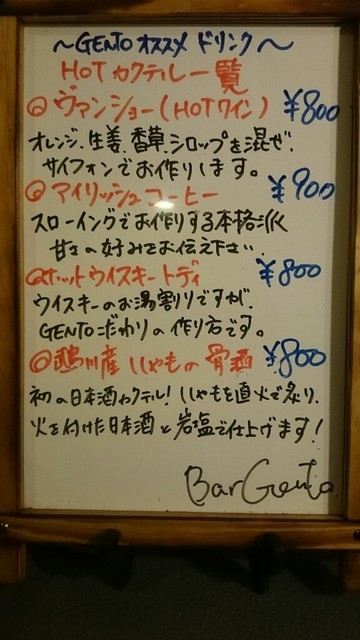 ～GENTO オススメ ドリンク～
HOTカクテル一覧
◎ヴァンショー(HOTワイン) ¥800
オレンジ、生姜、香草、シロップを混ぜ、
サイフォンでお作りします。
◎アイリッシュコーヒー ¥900
スローイングでお作りする本格派
甘さの好みをお伝え下さい
◎ホットウイスキートディ ¥800
ウイスキーのお湯割りですが、
GENTOこだわりの作り方です。
◎鵡川産ししゃもの骨酒 ¥800
初の日本酒カクテル!ししゃもを直火で炙り、
火を付けた日本酒と岩塩で仕上げます!
Bar Gento